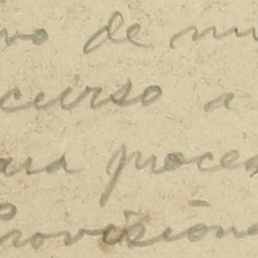 vo de nu
curso a
ara proced
Provisione